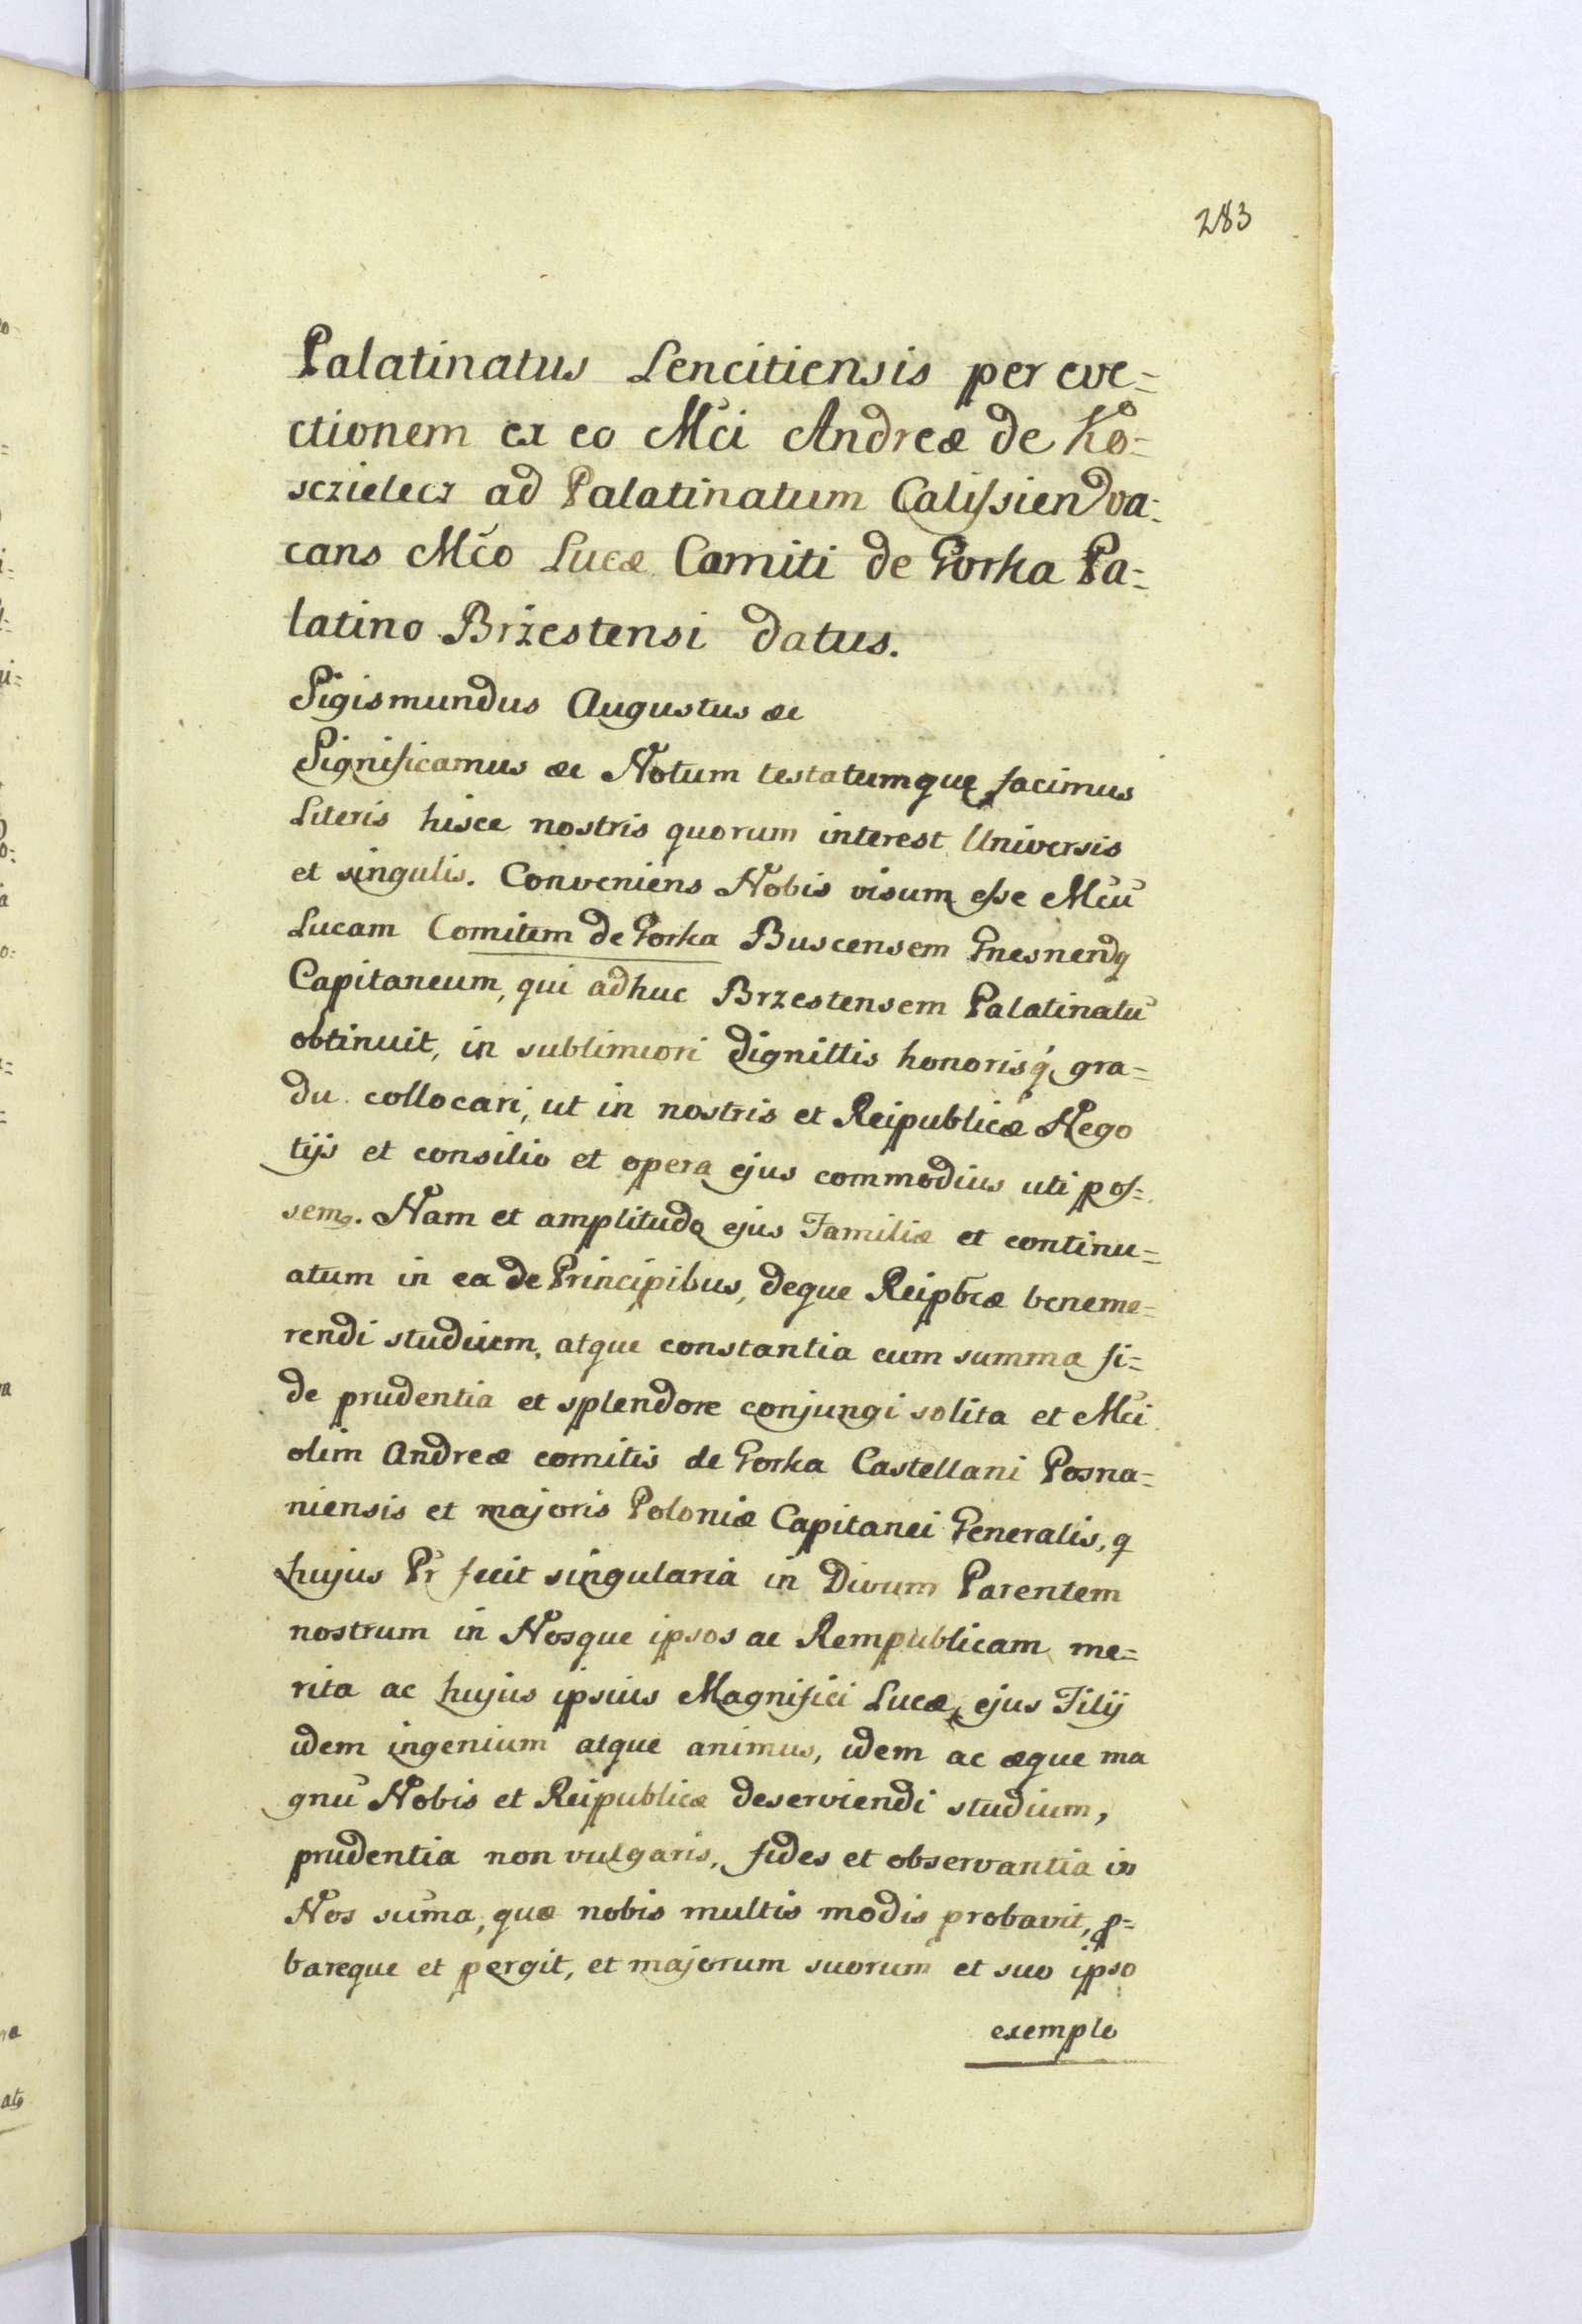 283
Palatinatus Lencitiensis per eve=
ctionem ex eo Mci Andreæ de Ko=
sczielecz ad Palatinatum Calissien va=
cans Mco Lucæ Comiti de Gorka Pa=
latino Brzestensi datus.
Sigismundus Augustus &c
Significamus &c Notum testatumque facimus
Literis hisce nostris quorum interest Universis
et singulis. Conveniens Nobis visum esse Mcū
Lucam Comitem de Gorka Buscensem Gnesnenq
Capitaneum, qui adhuc Brzestensem Palatinatū
obtinuit, in sublimiori dignittis honorisq́ gra=
du collocari, ut in nostris et Reipublicæ Nego
tijs et consilio et opera ejus commodius uti pos=
semꝰ. Nam et amplitudo ejus Familiæ et continu=
atum in ea de Principibus, deque Reipbcæ beneme=
rendi studium, atque constantia cum summa fi=
de prudentia et splendore conjungi solita et Mci
olim Andreæ comitis de Gorka Castellani Posna=
niensis et majoris Poloniæ Capitanei Generalis, q
hujus Pr fecit singularia in Divum Parentem
nostrum in Nosque ipsos ac Rempublicam me=
rita ac hujus ipsius Magnifici Lucæ, ejus Filij
idem ingenium atque animus, idem ac æque ma
gnū Nobis et Reipublicæ deserviendi studium,
prudentia non vulgaris, fides et observantia in
Nos sūma, quæ nobis multis modis probavit, ꝓ=
bareque et pergit, et majorum suorum et suo ipso
exemplo